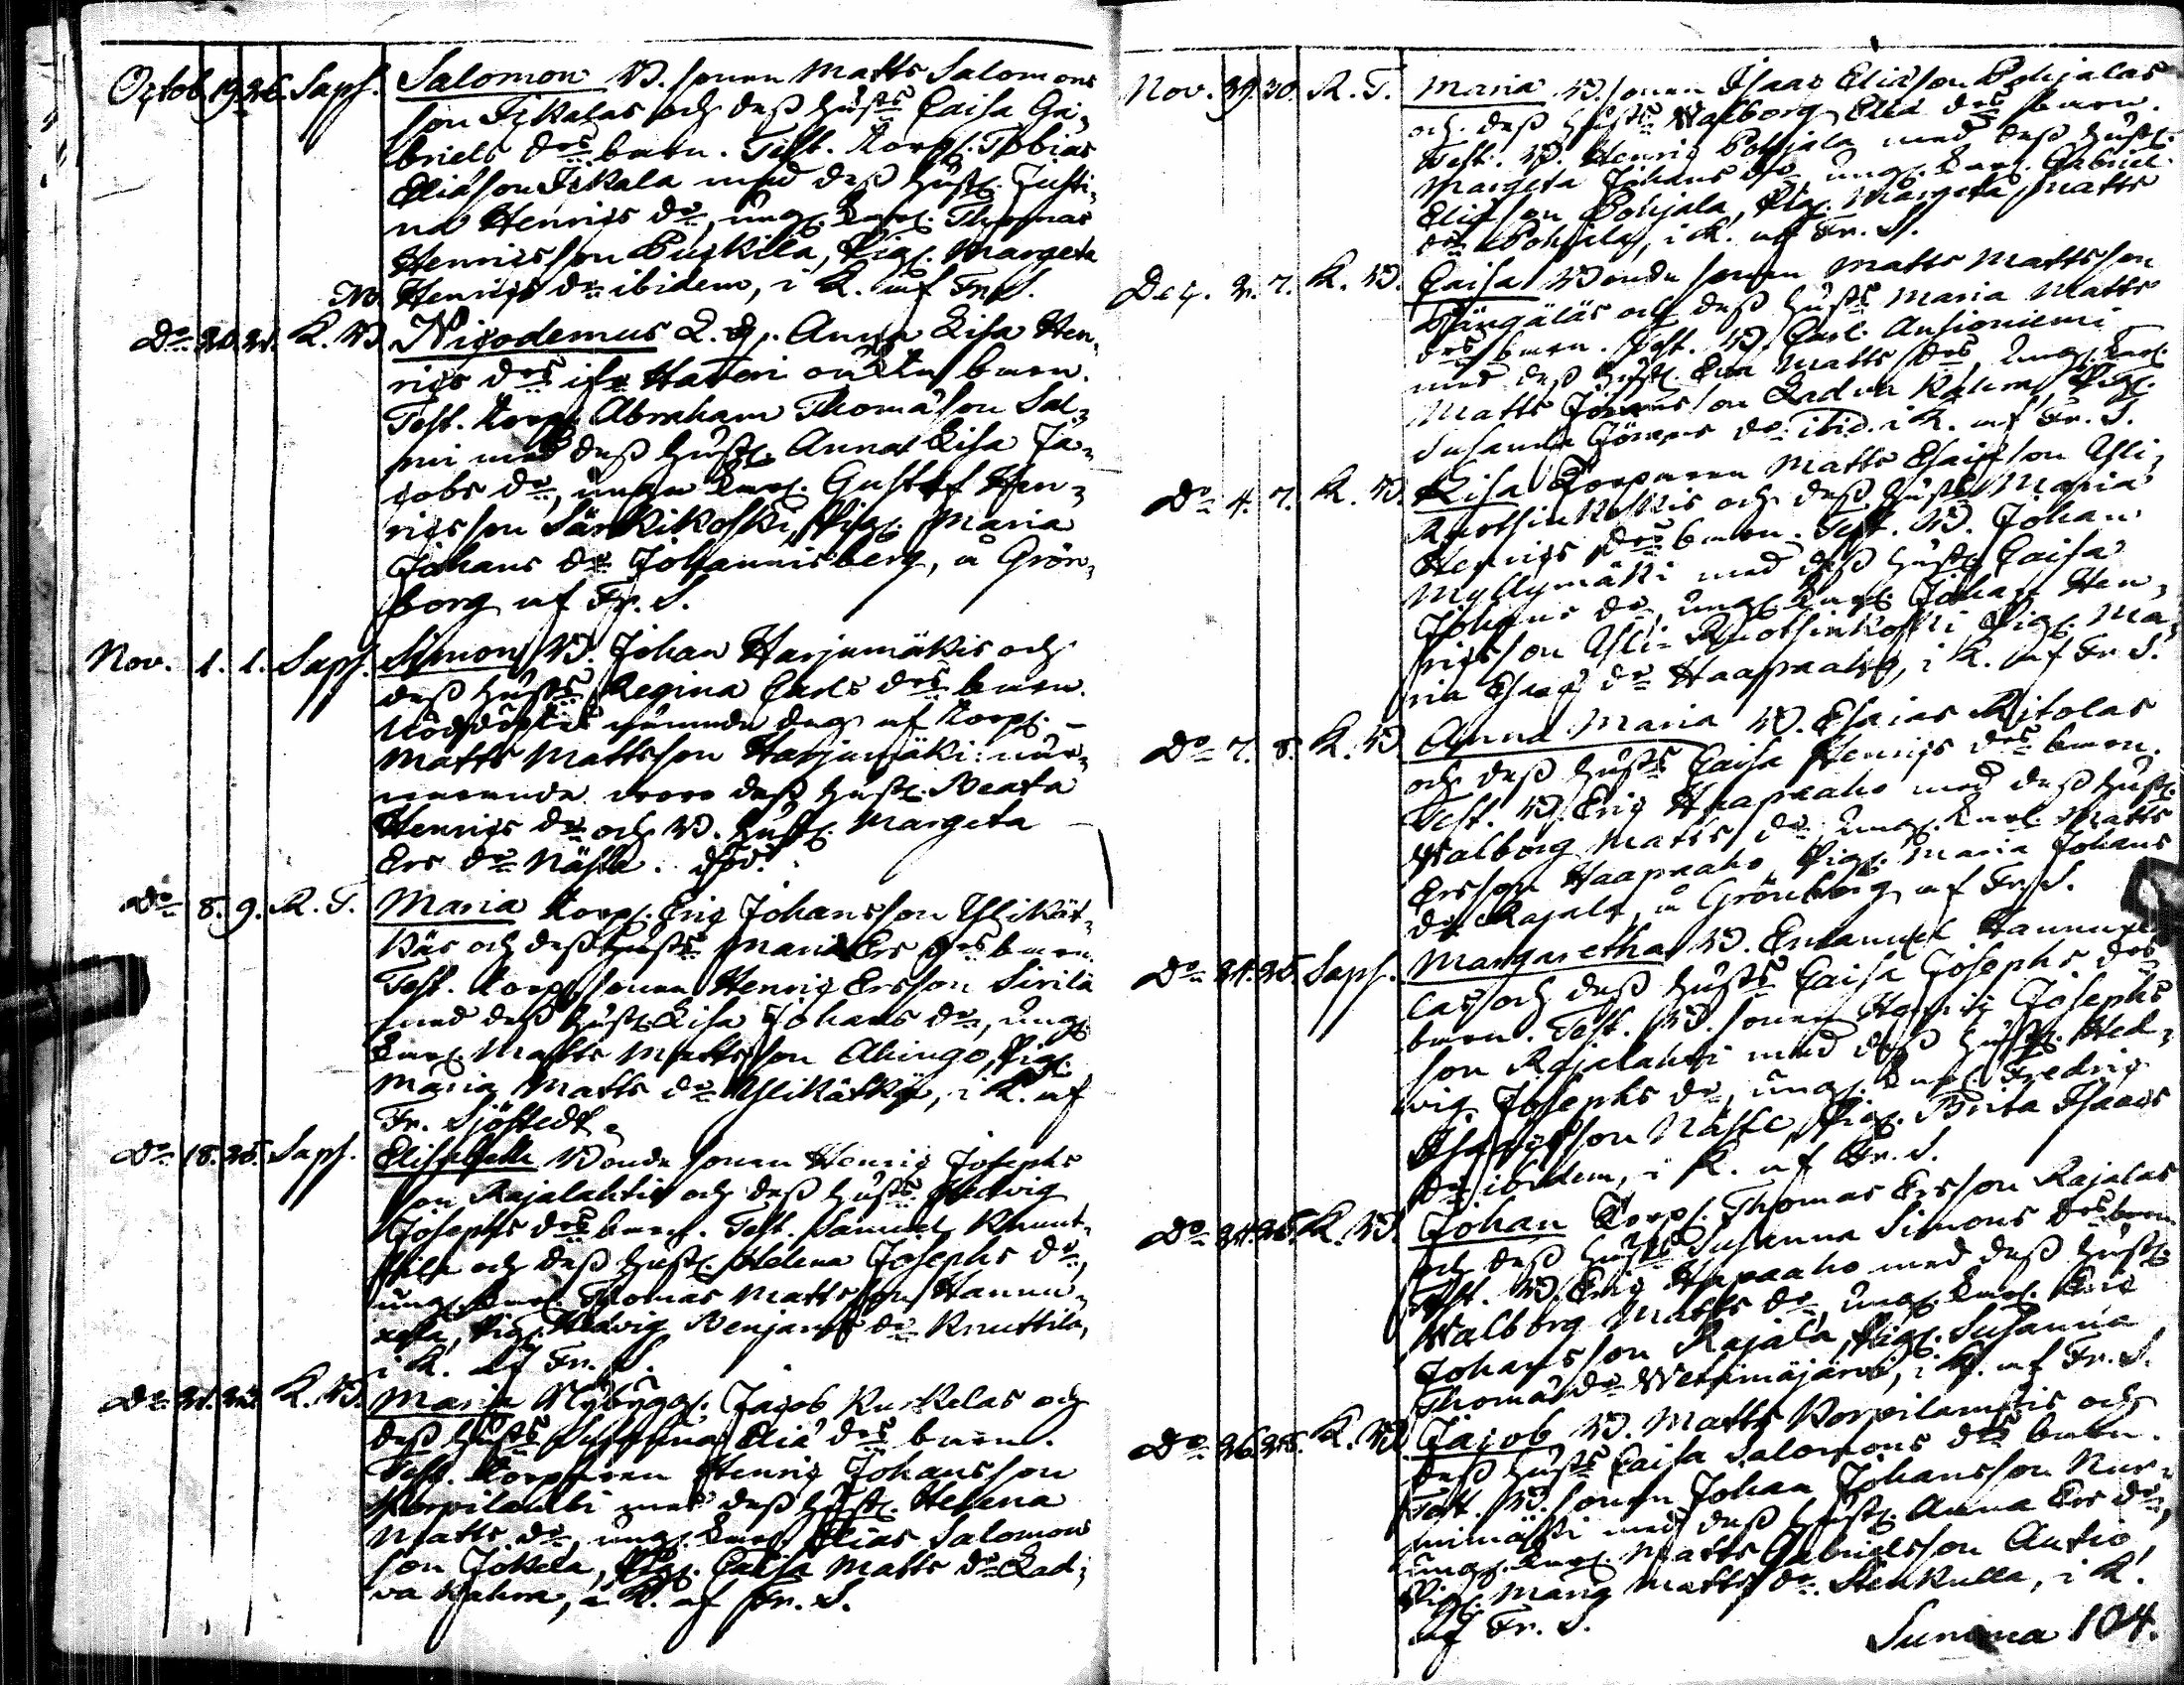 Octob. 19. 26. Saps. Salomon B. sonen Matts Salomons
son och dess Hustrs Caisa Ga-
briels drs barn. Test. Torp. Tobias
Eliäson med dess Hustr. Justi-
na Henrics dr, ung. Karl. Thomas
Henricsson Puskila, Pig. Margeta
Henrics dr ibidem, i K. af Fr. S.
Do 20. 21. K. B. Nicodemus Anna Lisa Hen-
rics drs barn.
Test. Torp. Abraham Thomäson Sal-
mi med dess Hustr. Anna Lisa Ja-
cobs dr, unga Karl. Gustaf Hen-
ricsson Särkikoski, Pig. Maria
Johans dr Johannisberg, a Grön-
borg af Fr. S.
Nov. 1. 1. Saps. Simon B. Johan Harjumäkis och
dess Hustrs Regina Carls drs barn.
Nöddöptes samma dag af Torp.
Matts Mattsson Harjumäki; när-
varande voro dess Hustr. Beata
Henrics dr och B. Hustr. Margeta
Ers dr Näske. död.
Do 8. 9. R. T. Maria Torp. Eric Johansson Ylikät-
käs och dess Hustrs Maria Ers drs barn.
Test. Torp. sonen Henric Ersson Sirilä
med dess Hustr. Lisa Johans dr, ung.
Karl. Matts Mattsson Ahingo, Pig.
Maria Matts dr Ylikätkä, i K. af
Fr. Sjöstedt.
Do 18. 25. Saps. Elisabetha Bonde sonen Henric Josephs
son Rajalahtis och dess Hustrs Hedvig
Josephs drs barn. Test. Samuel Knuut-
tila och dess Hustr. Helena Josephs dr,
ung. Karl. Thomas Mattsson Hannu-
xela, Pig. Hedvig Benjams dr Knuttila,
i K. af Fr. S.
Do 21. 22. K. B. Maria Nybygg. Jacob Kuckelas och
dess Hustrs Susanna Eliä drs barn.
Test. Torparen Henric Johansson
Korpilambi med dess Hustr. Helena
Matts dr, ung. Karl Elias Salomons
son Jokela, Pig. Caisa Matts dr Lad-
va Kahra, i K. af Fr. S.
Nov. 29. 30. R. T. Maria B. sonen Isaac Eliäson Pohjalas
och dess Hustrs Walborg Eliä drs barn.
Test. B. Henric Pohjala med dess Hustr.
Margeta Johans dr, ung. Karl. Gabriel
Eliäson Pohjala, Pig. Margeta Matts
dr Pohjala, i K. af Fr. S.
Dec. 2. 7. K. B. Caisa Bonde sonen Matts Mattsson
och dess Hustrs Maria Matts
drs barn. Test. B. Carl Ansioniemi
med dess Hustr. Eva Matts dr, ung. Karl.
Matts Jöransson Ladva Kahra, Pig.
Susanna Jörans dr ibid. i K. af Fr. S.
Do 4. 7. K. B. Lisa Torparen Matts Esaiäson Yli-
Ruotsinkoskis och dess Hustrs Maria
Henrics drs barn. Test. B. Johan
Myllymäki med dess Hustr. Caisa
Johans dr, ung. Karl. Johan Hen-
ricsson Yli-Ruotsinkoski, Pig. Ma-
ria dr Haapaaho, i K. af Fr. S.
Do 7. 8. K. B. Anna Maria B. Esaias Ritolas
och dess Hustrs Caisa Henrics drs barn.
Test. B. Eric Haapaaho med dess Hustr.
Walborg Matts dr, ung. Karl. Matts
Ersson Haapaaho, Pig. Maria Johans
dr Rajala, a Grönborg af Fr. S.
Do 24. 25. Saps. Margaretha B. Emanuel Hannuxe-
las och dess Hustrs Caisa Josephs drs
barn. Test. B. sonen Henric Josephs
son Rajalahti med dess Hustr. Hed-
vig Josephs dr, ung. Karl. Fredric
son Näske, Pig. Brita Isaacs
dr ibidem, i K. af Fr. S.
Do 24. 25. K. B. Johan Torp. Thomas Ersson Rajalas
och dess Hustrs Susanna Simons drs barn
Test. B. Eric Hapaaho med dess Hustr.
Walborg Matts dr, ung. Karl. Eric
Johansson Rajala, Pig. Susanna
Thomä dr Wehmäjärvi, i K. af Fr. S.
Do 26. 28. K. B. Jacob B. Matts Korpilambis och
dess Hustrs Caisa Salomons drs barn.
Test. B. sonen Johan Johansson Nur-
mimäki med dess Hustr. Anna Ers dr,
ung. Karl. Matts Gabrielsson Autio,
Pig. Maria Matts dr Stenkulla, i K.
af Fr. S.
Summa 104.